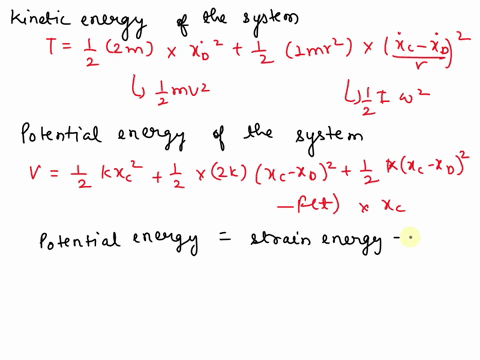 Kinetic energy of the system
T = 1/2 (2m) × ẋ_D² + 1/2 (2mr²) × ((ẋ_C − ẋ_D)/r)²
↳ 1/2 mv² ↳ 1/2 I ω²
Potential energy of the system
V = 1/2 k x_C² + 1/2 × (2k) (x_C − x_D)² + 1/2 k (x_C − x_D)²
− f(t) × x_C
Potential energy = strain energy -